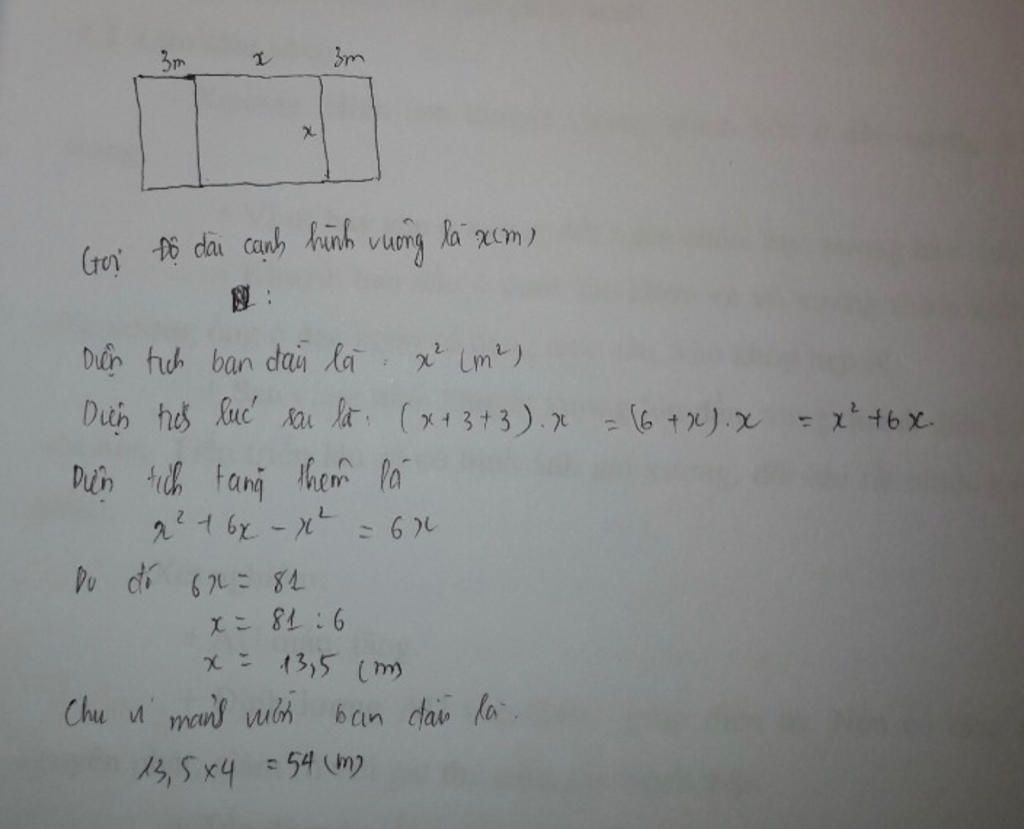 3m x 3m
x
Gọi độ dài cạnh hình vuông là x(m)
:
Diện tích ban đầu là: x² (m²)
Diện tích lúc sau là: (x+3+3).x = (6+x).x = x²+6x.
Diện tích tăng thêm là
x² + 6x - x² = 6x
Do đó 6x = 81
x = 81 : 6
x = 13,5 (m)
Chu vi mảnh vườn ban đầu là.
13,5 x 4 = 54 (m)